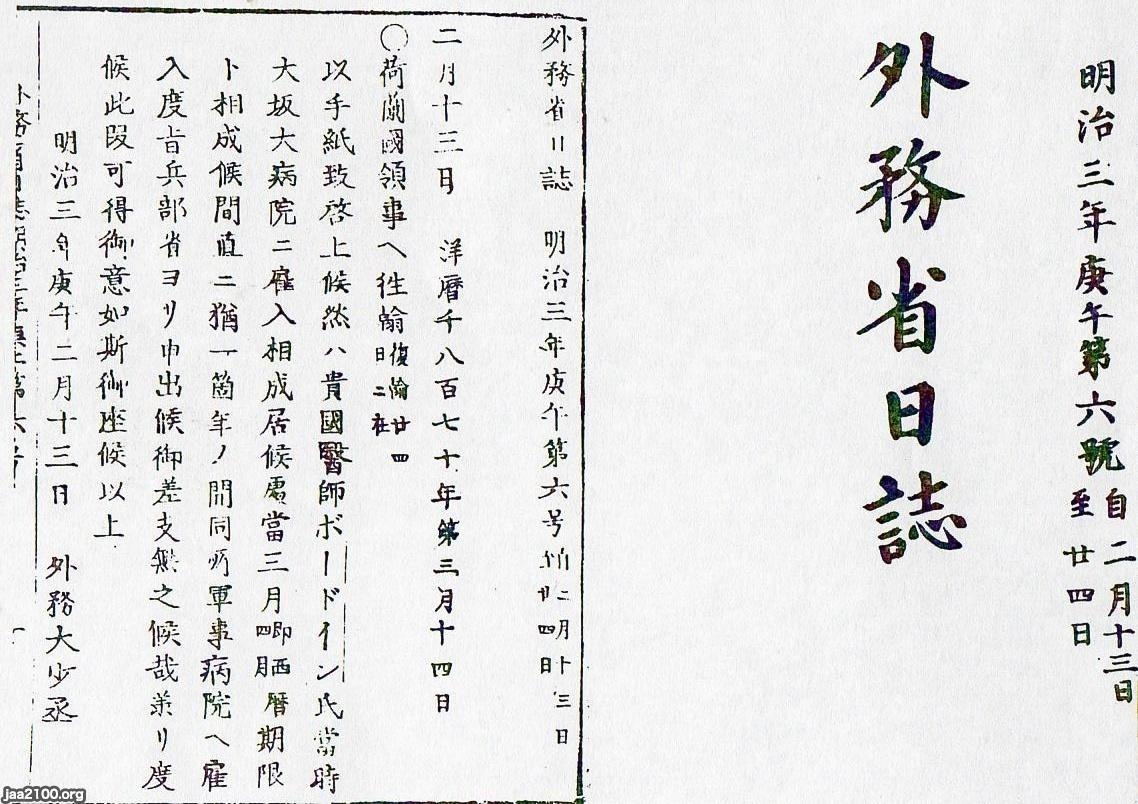 明治三年庚午第六號 自二月十三日 至廿四日
外務省日誌
外務省日誌 明治三年庚午第六号 自二月十三日 廿四日
二月十三日 洋曆千八百七十年第三月十四日
〇荷蘭國領事へ徃翰 復翰廿四日ニ在
以手紙致啓上候然ハ貴國醫師ボードイン氏當時
大坂大病院ニ雇入相成居候處當三月 即西曆四月 期限
ト相成候間直ニ猶一箇年ノ間同所軍事病院へ雇
入度旨兵部省ヨリ申出候御差支無之候哉兼リ度
候此段可得御意如斯御座候以上
明治三年庚午二月十三日 外務大少丞
jaa2100.org